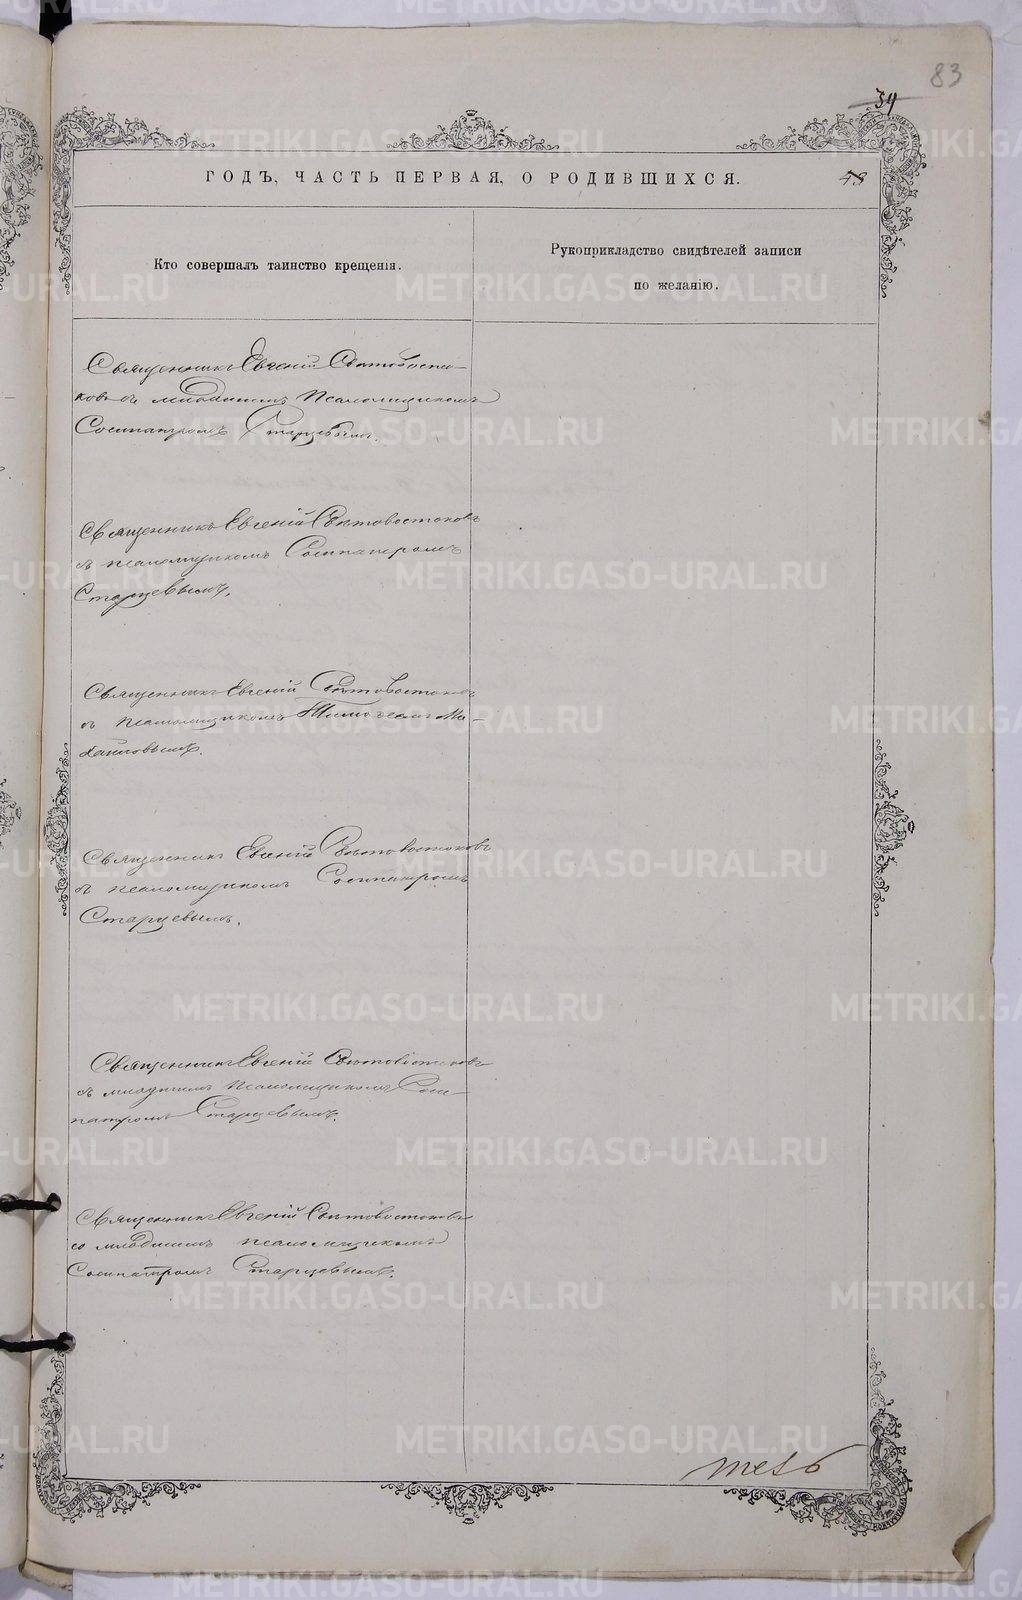 83
34
ГОДЪ, ЧАСТЬ ПЕРВАЯ, О РОДИВШИХСЯ.
43
Кто совершалъ таинство крещенія.
Рукоприкладство свидѣтелей записи
по желанію.
Священникъ Евгеній Свѣтовосто-
ковъ съ младшимъ псаломщикомъ
Сосипатромъ Старцевымъ.
Священникъ Евгеній Свѣтовостоковъ
съ псаломщикомъ Сосипатромъ
Старцевымъ.
Священникъ Евгеній Свѣтовостоковъ
съ псаломщикомъ Тимофеемъ Ми-
хайловымъ.
Священникъ Евгеній Свѣтовостоковъ
съ псаломщикомъ Сосипатромъ
Старцевымъ.
Священникъ Евгеній Свѣтовостоковъ
съ младшимъ псаломщикомъ Соси-
патромъ Старцевымъ.
Священникъ Евгеній Свѣтовостоковъ
со младшимъ псаломщикомъ
Сосипатромъ Старцевымъ.
METRIKI.GASO-URAL.RU